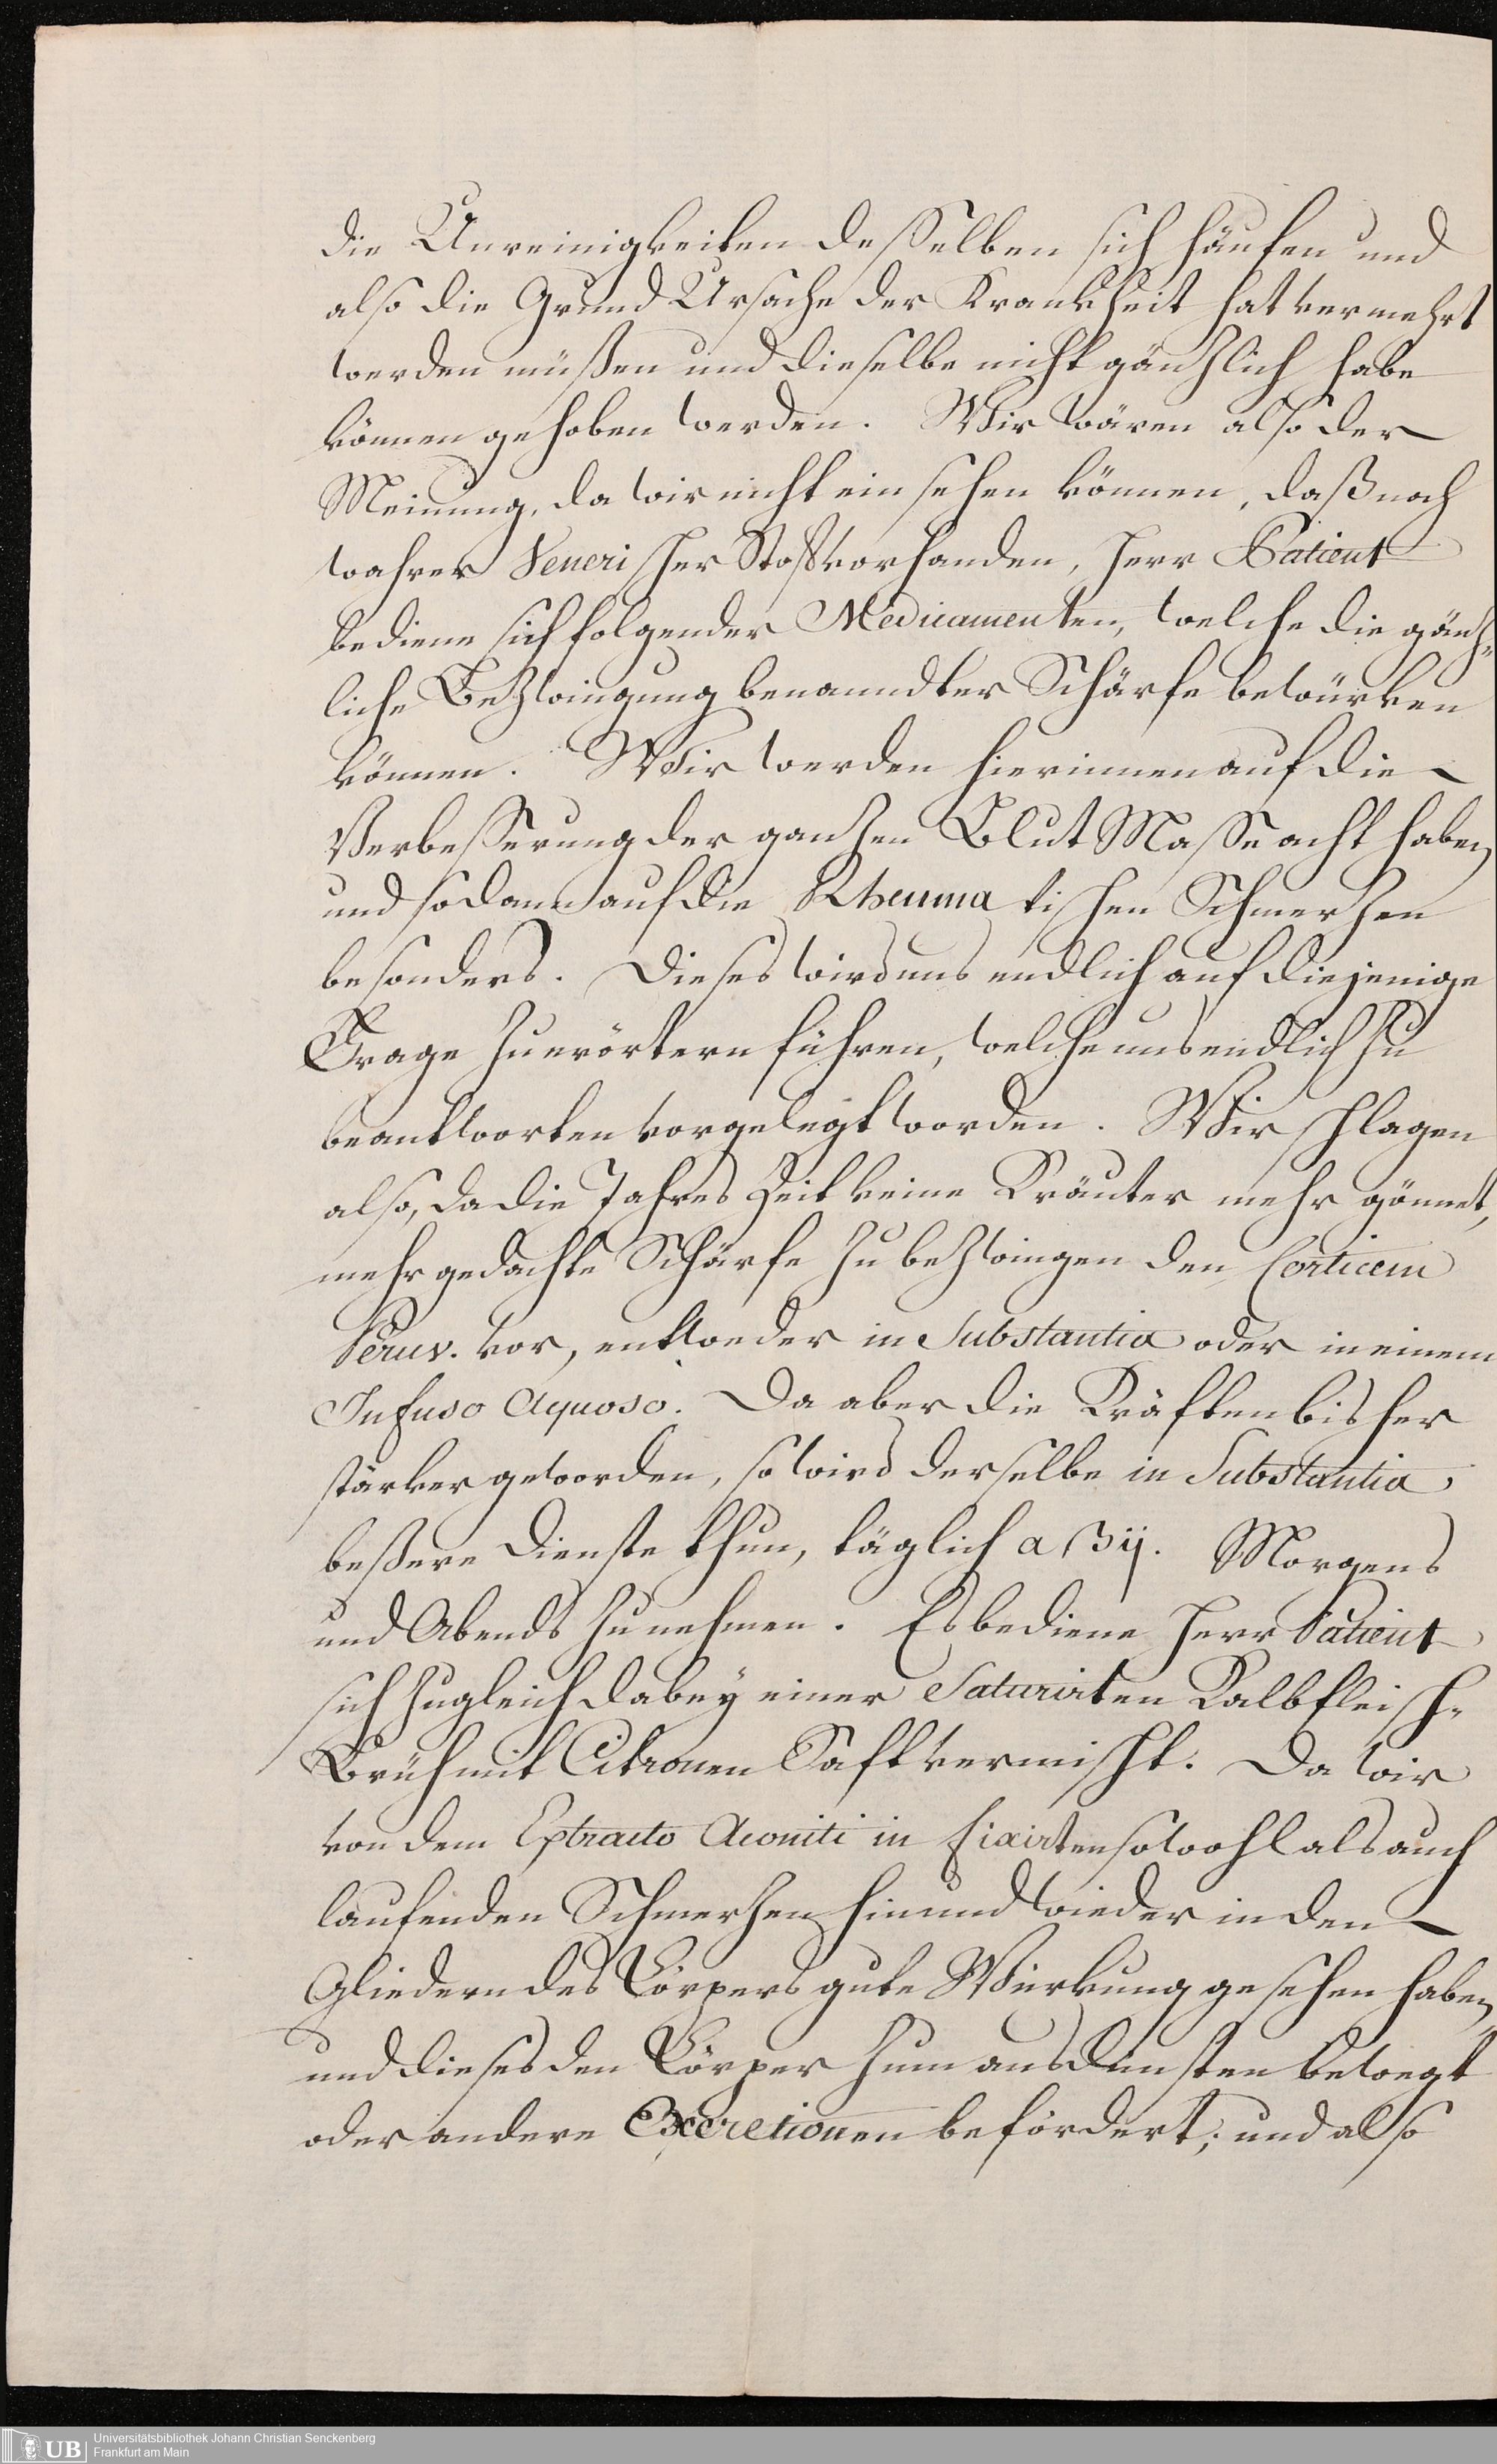 die Unreinigkeiten desselben sich häufen und
also die Grund Ursache der Krankheit hat vermehrt
werden müßen und dieselbe nicht gäntzlich habe
können gehoben werden. Wir wären also der
Meinung, da wir nicht einsehen können, daß noch
wahrer Venerischer Stoff vorhanden, Herr Patient
bediene sich folgender Medicamenten, welche die gäntz-
liche Bezwingung benanndter Schärfe bewürken
können. Wir werden hierinnen auf die
Verbesserung der gantzen Blut Masse acht haben,
und sodann auf die Rheumatischen Schmertzen
besonders. Dieses wird uns endlich auf diejenige
Frage zu erörtern führen, welche uns endlich zu
beantworten vorgelegt worden. Wir schlagen
also, da die Jahres Zeit keine Kräuter mehr gönnet,
mehr gedachte Schärfe zu bezwingen den Corticem
Peruv. vor, entweder in Substantia oder in einem
Infuso Aquoso. Da aber die Kräften bisher
stärker geworden, so wird derselbe in Substantia
beßere Dienste thun, täglich a ℈ij. Morgens
und Abends zu nehmen. Es bediene Herr Patient
sich zugleich dabey einer Saturirten Kalbfleisch-
Brüh mit Citronen Saft vermischt. Da wir
von dem Extracto Aconiti in fixirten sowohl als auch
laufenden Schmertzen hin und wieder in den
Gliedern des Cörpers gute Würkung gesehen haben,
und dieses den Cörper zum ausdünsten bewegt
oder andere Excretionen befördert; und also
Universitätsbibliothek Johann Christian Senckenberg
Frankfurt am Main
UB